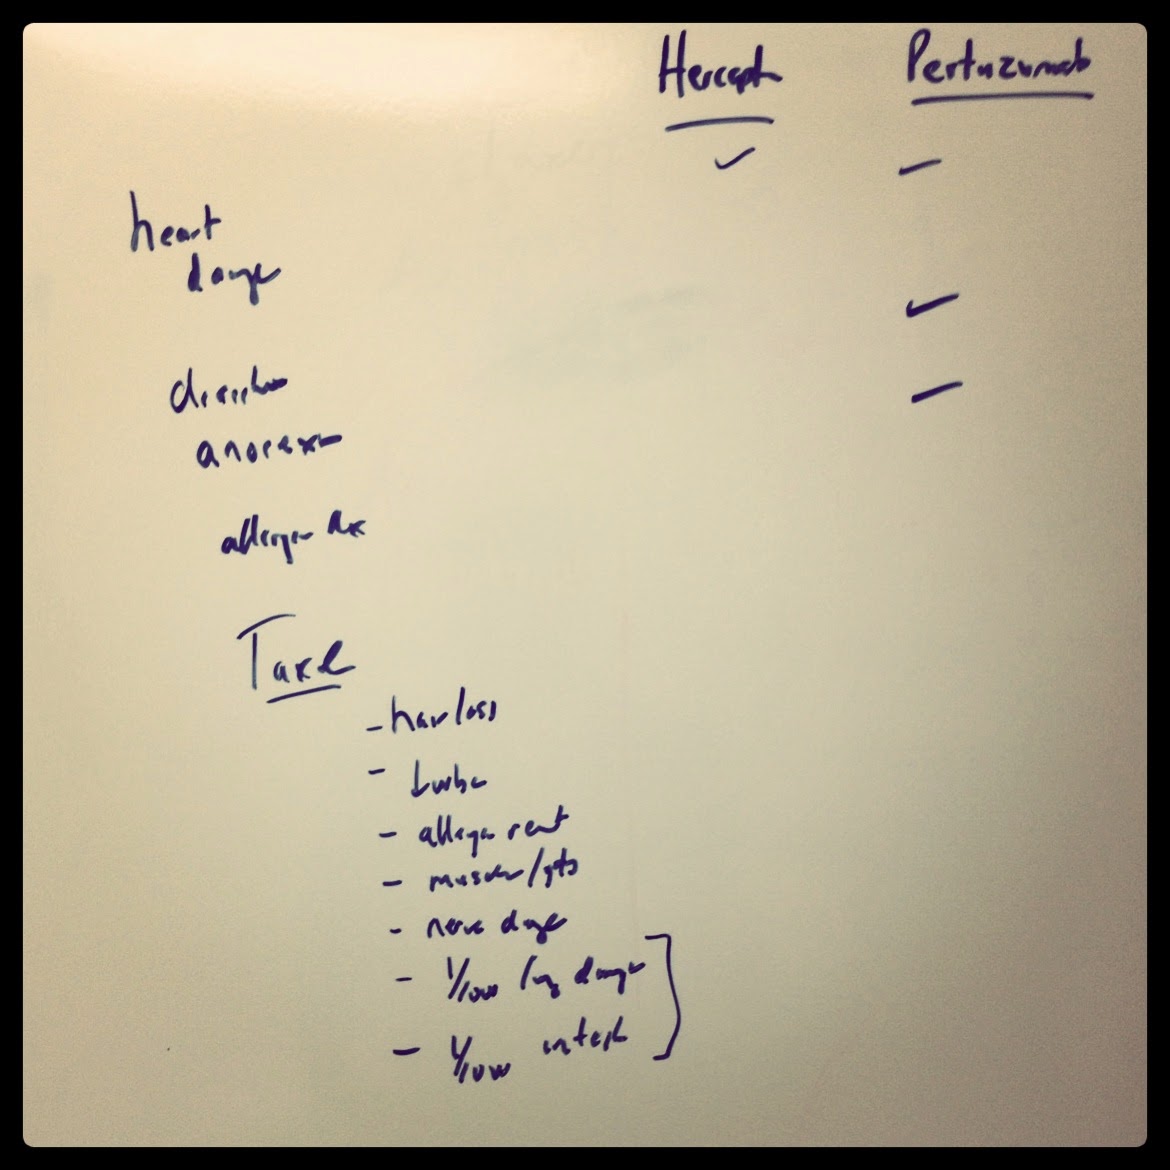 Hercept Pertuzumab
✓ ✓
heart
damage
✓
diarrhea
✓
anorexia
allergic Rx
Taxol
- hair loss
- ↓ wbc
- allergic react
- muscle/jts
- nerve damage
- 1/1000 lung damage
- 1/1000